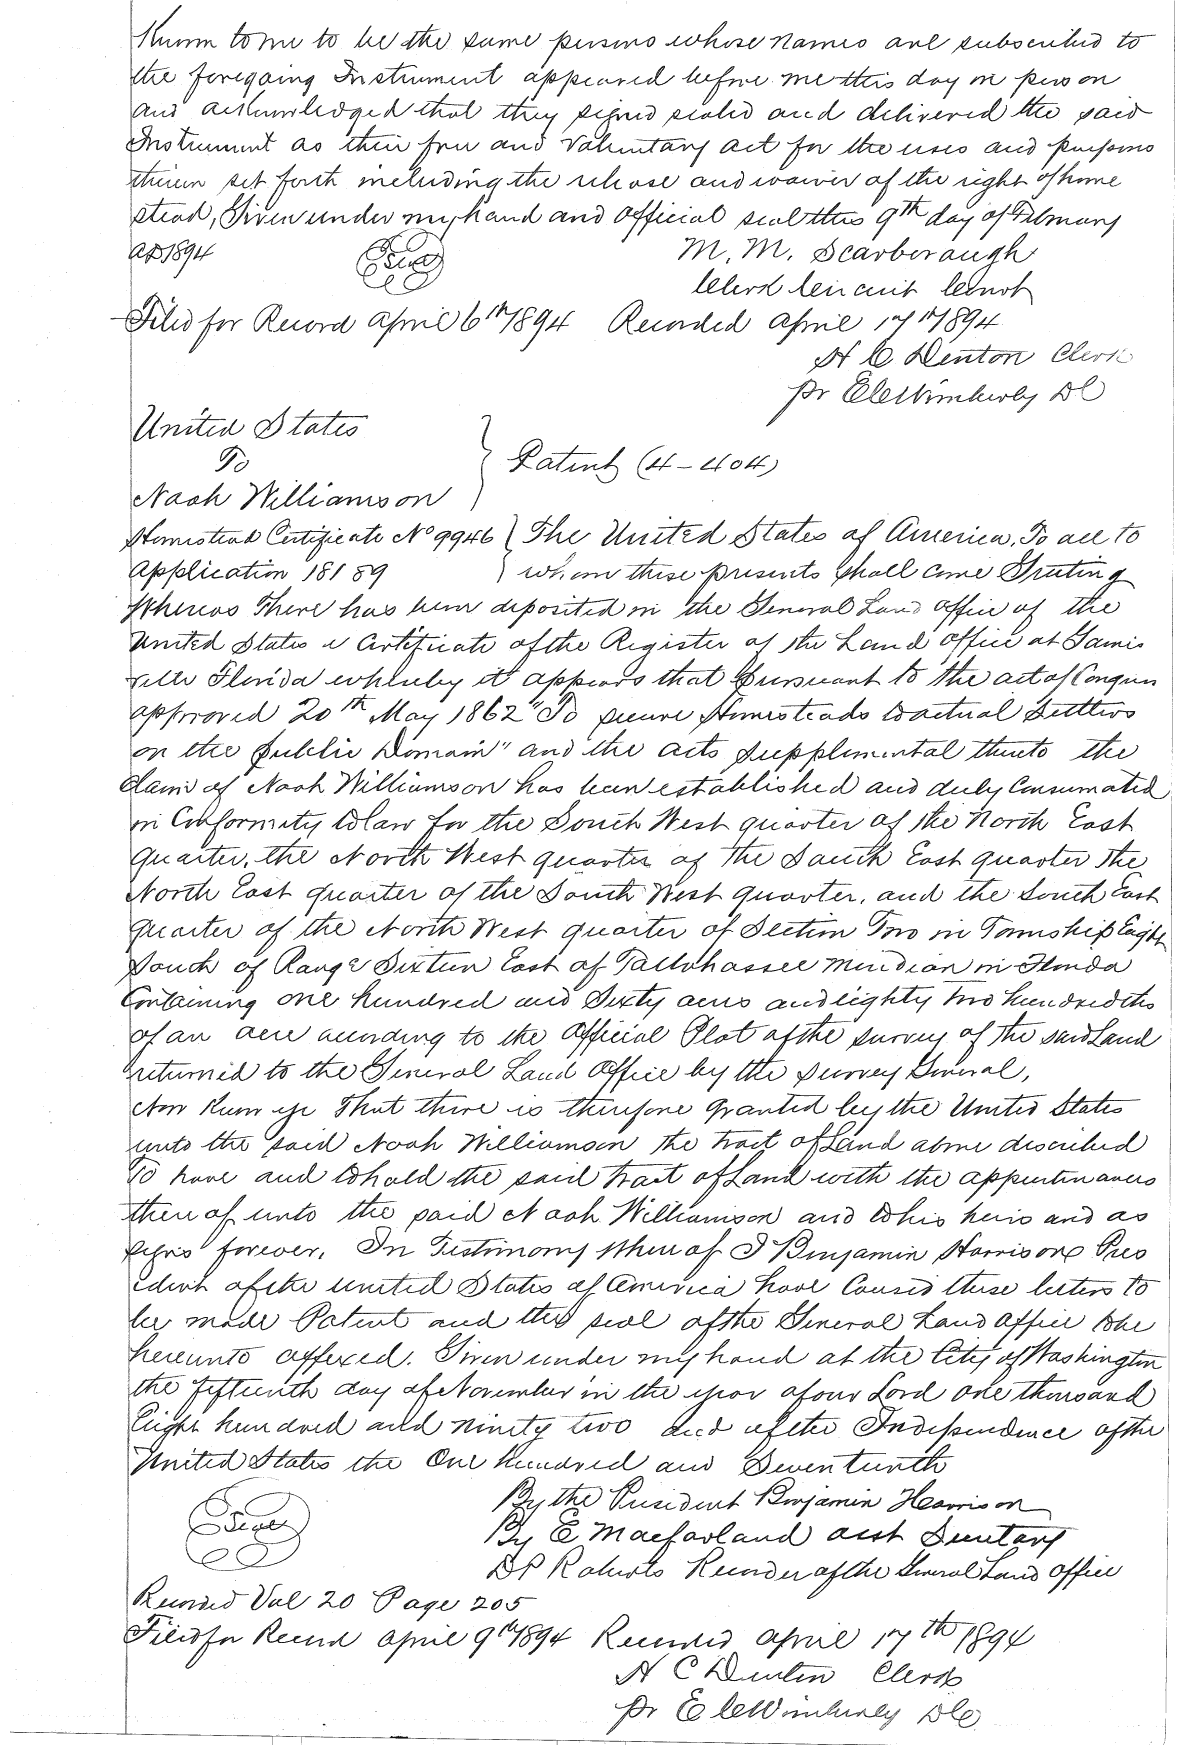 Known to me to be the same persons whose names are subscribed to
the foregoing Instrument appeared before me this day in person
and acknowledged that they signed sealed and delivered the said
Instrument as their free and Voluntary act for the uses and purposes
therein set forth including the release and waiver of the right of home
stead, Given under my hand and official seal this 9th day of February
AD 1894
Seal
M. M. Scarborough
Clerk Circuit Court
Filed for Record April 6th 1894 Recorded April 17th 1894
H C Denton Clerk
Pr E C Wimberly DC
United States
To
Noah Williamson
Patent (4-404)
Homestead Certificate No 9946 } The United States of America, To all to
Application 18189 } whom these presents shall come Greeting
Whereas There has been deposited in the General Land office of the
United States a Certificate of the Register of the Land office at Gaines
ville Florida whereby it appears that pursuant to the act of Congress
approved 20th May 1862 "To secure Homesteads to actual Settlers
on the public Domain" and the acts supplemental thereto the
claim of Noah Williamson has been established and duly Consumated
in Conformity to law for the South West quarter of the North East
quarter, the North West quarter of the South East quarter the
North East quarter of the South West quarter, and the South East
quarter of the North West quarter of Section Two in Township Eight
South of Range Sixteen East of Tallahassee Meridian in Florida
Containing one hundred and Sixty acres and eighty two hundredths
of an acre according to the Official Plat of the survey of the said Land
returned to the General Land Office by the Survey General,
Now Know ye That there is therefore granted by the United States
unto the said Noah Williamson the tract of Land above described
To have and to hold the said tract of Land with the appurtenances
thereof unto the said Noah Williamson and to his heirs and as
signs forever. In Testimony Whereof I Benjamin Harrison Pres
ident of the United States of America have Caused these letters to
be made Patent and the seal of the General Land Office to be
hereunto affexed. Given under my hand at the City of Washington
the fifteenth day of November in the year of our Lord one thousand
Eight hundred and ninety two and of the Independence of the
United States the One hundred and Seventeenth
By the President Benjamin Harrison
Seal
By E Macfarland asst Secretary
DP Roberts Recorder of the General Land office
Recorded Vol 20 Page 205
Filed for Record April 9th 1894 Recorded April 17th 1894
H C Denton Clerk
Pr E C Wimberly DC